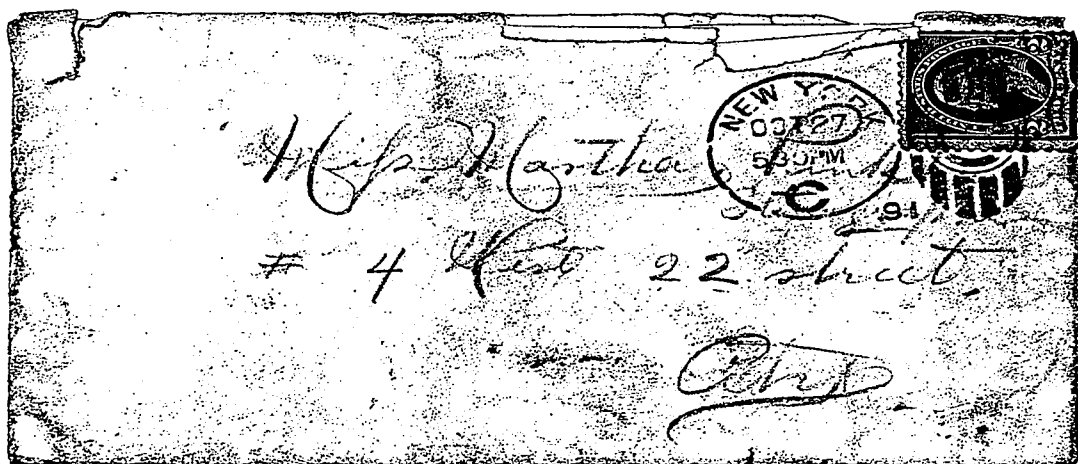 NEW YORK
OCT 27
530PM
C
94
Miss Martha
# 4 West 22 street.
City